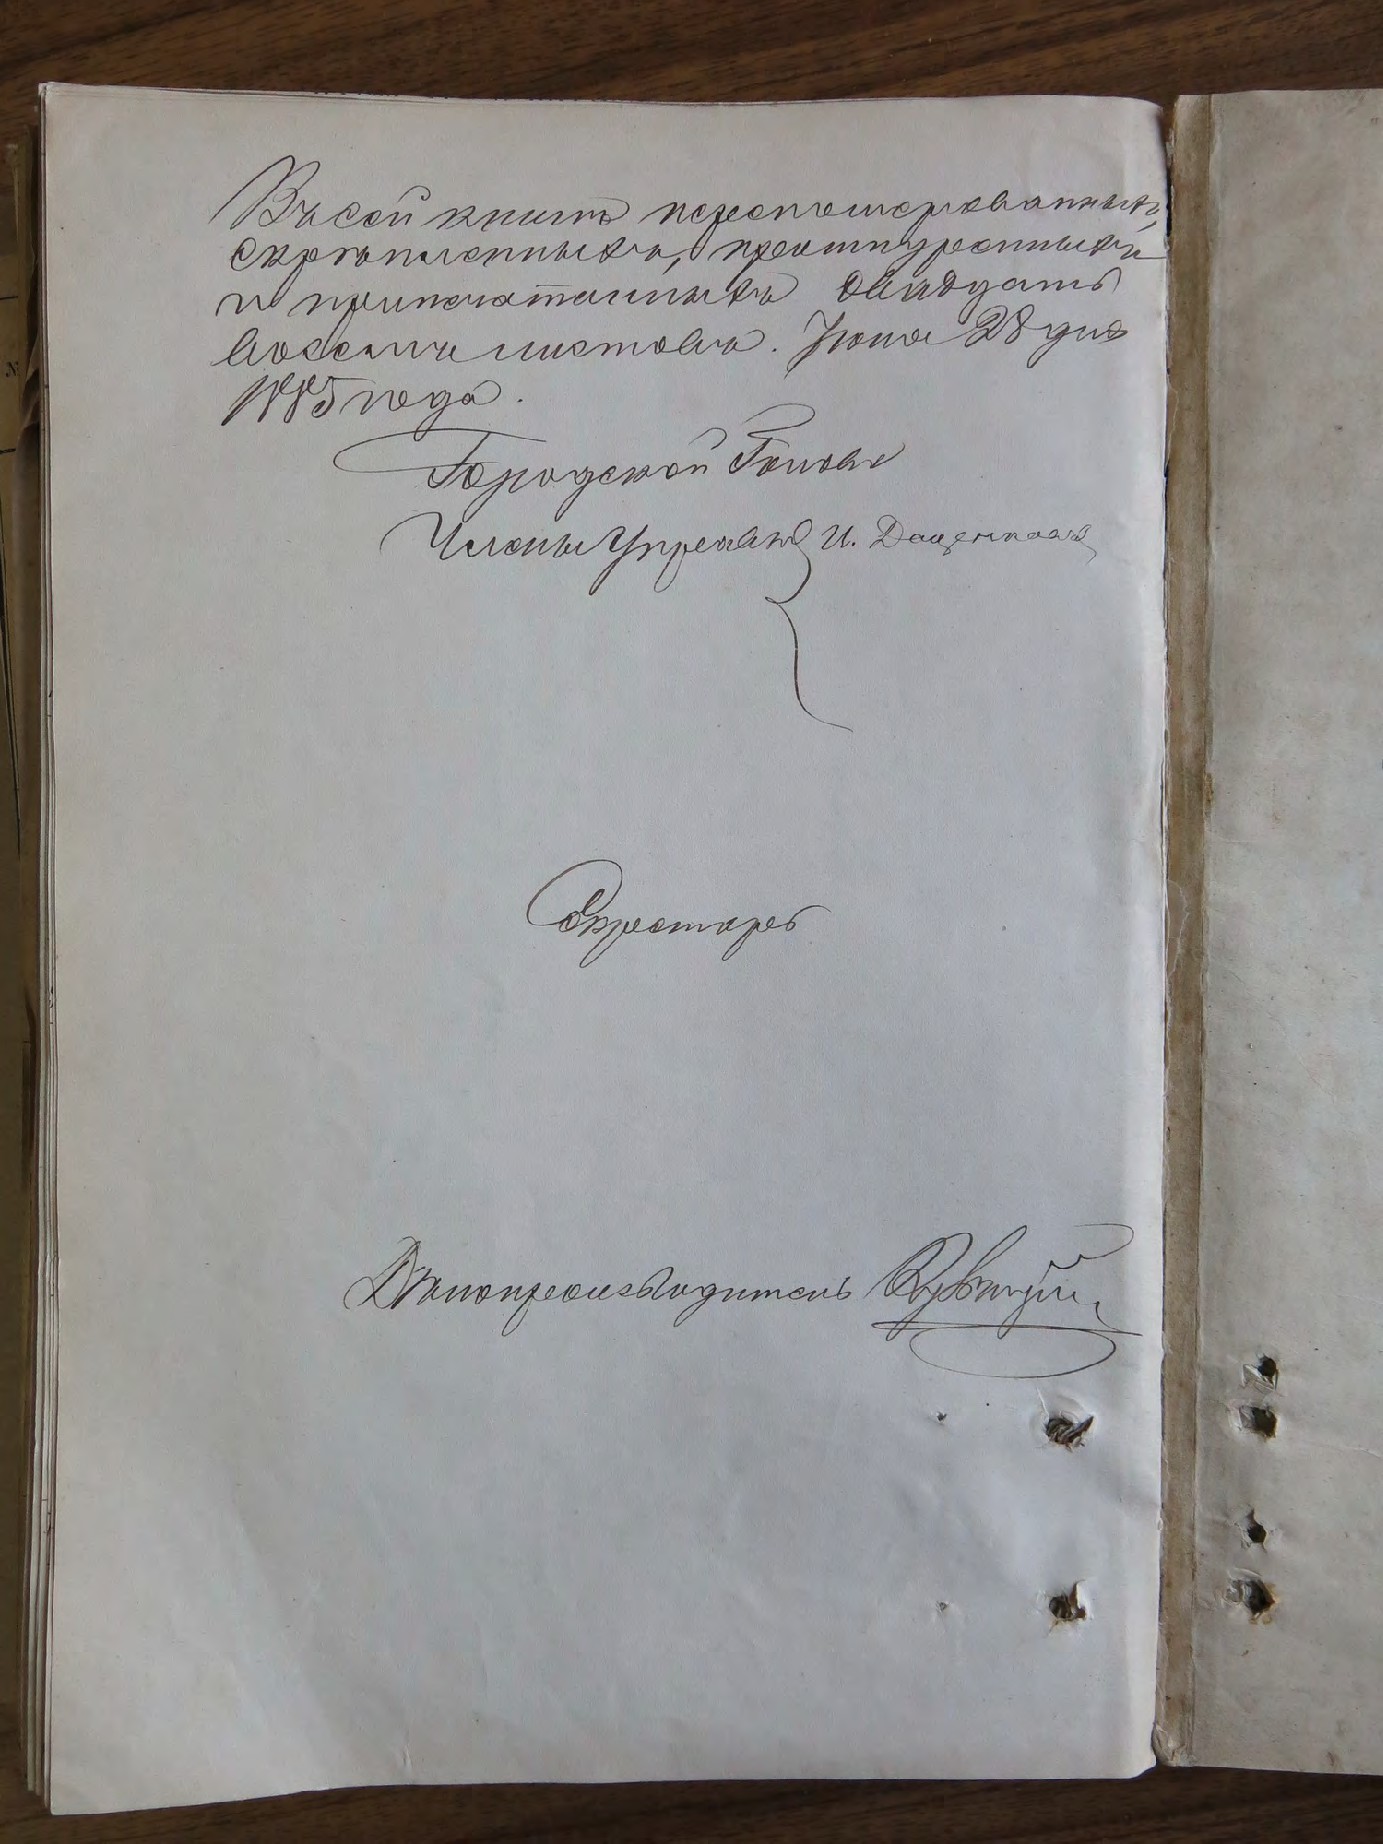 Въ сей книгѣ перенумерованныхъ,
скрѣпленныхъ, прошнурованныхъ
и припечатанныхъ двадцать
восемь листовъ. Іюня 28 дня
1885 года.
Городской Голова
Члены Управы И. Даценко
Секретарь
Дѣлопроизводитель